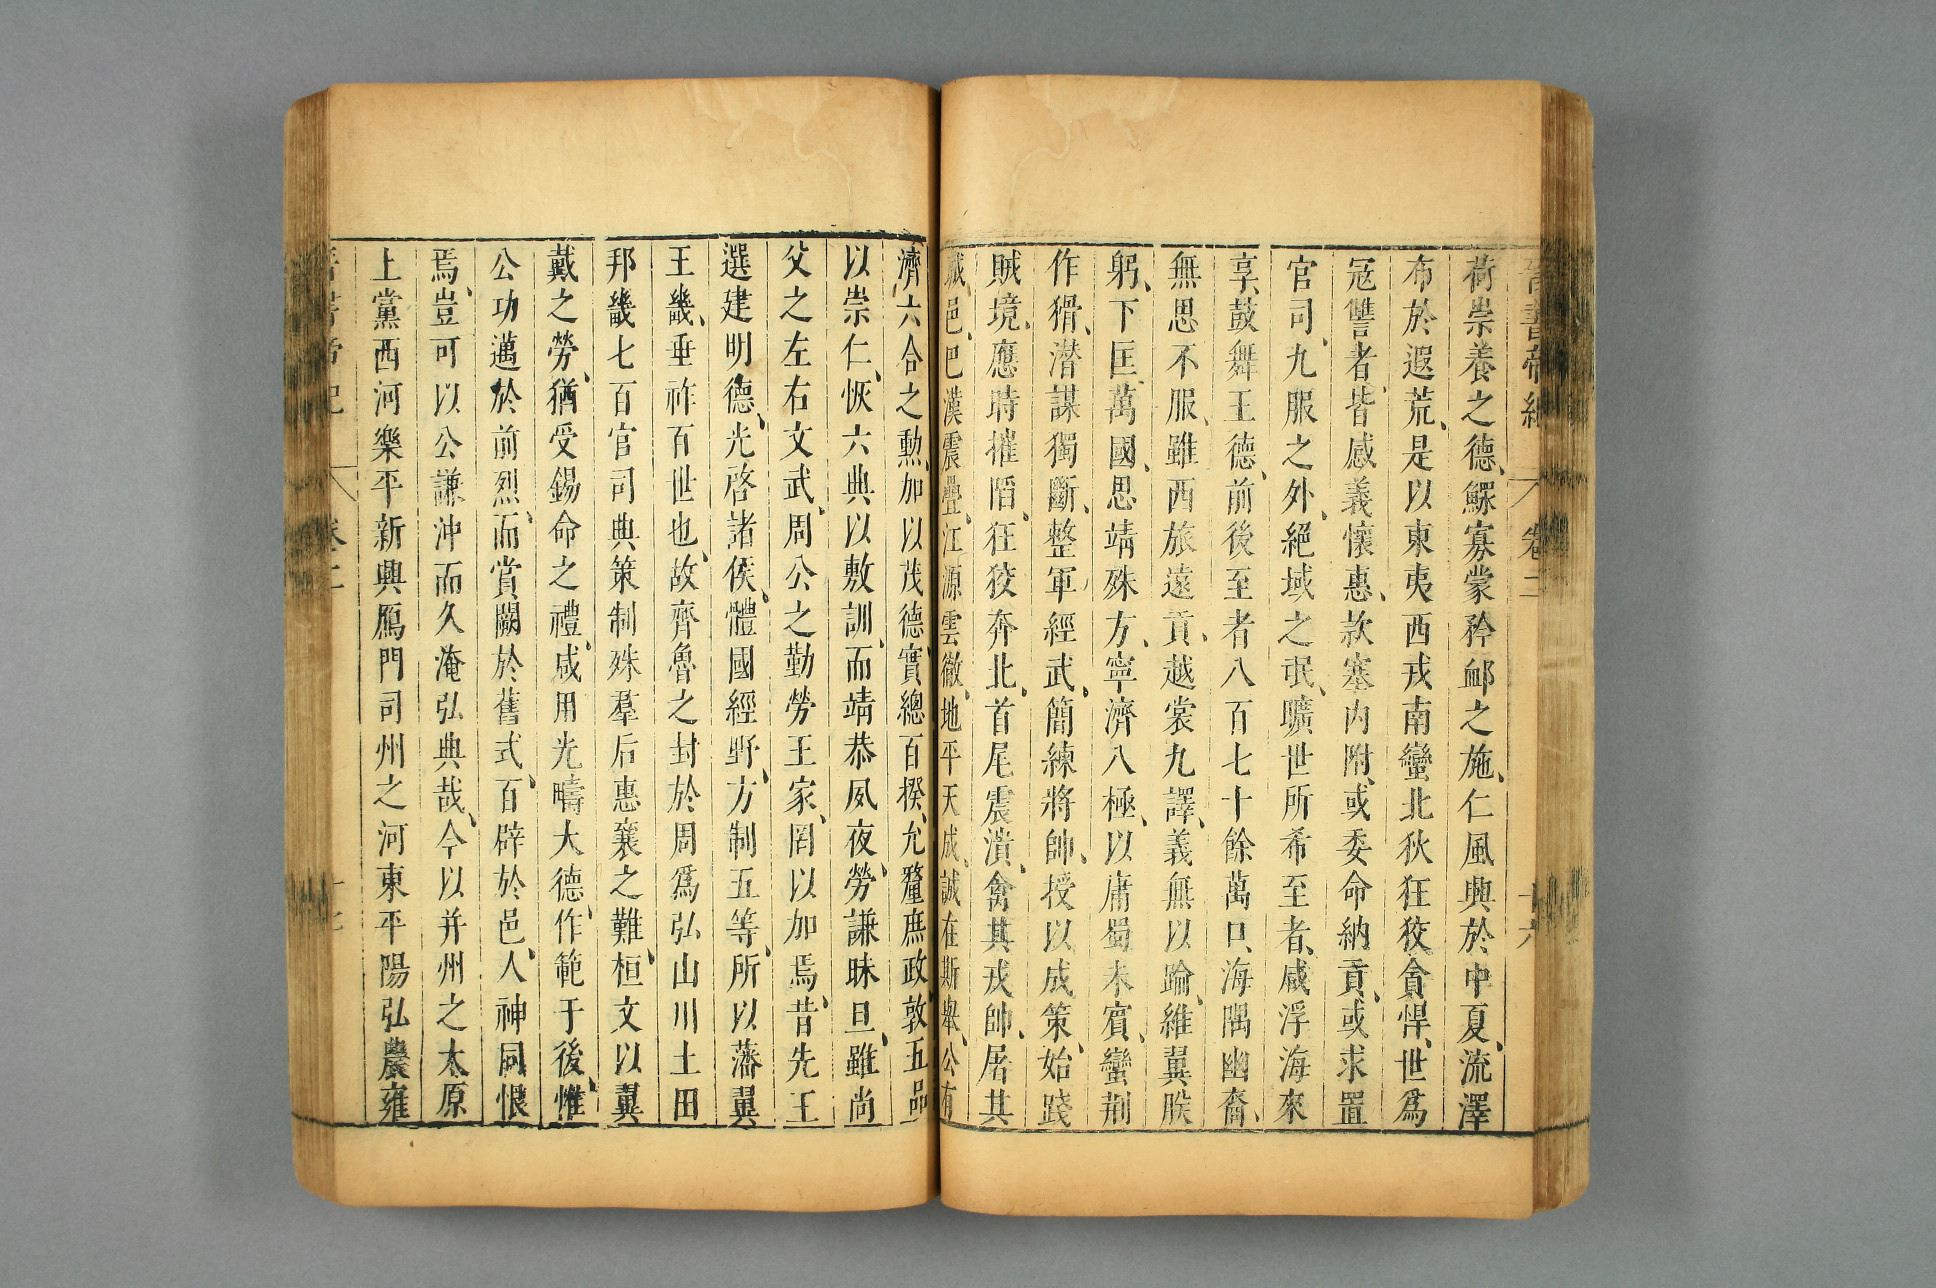 晉書帝紀 卷二 十六
荷崇養之德、鰥寡蒙矜䘏之施、仁風興於中夏、流澤
布於遐荒、是以東夷西戎南蠻北狄狂狡貪悍、世爲
寇讐者、皆感義懷惠、款塞內附、或委命納貢、或求置
官司、九服之外、絕域之氓、曠世所希至者、咸浮海來
享、鼓舞王德、前後至者八百七十餘萬口、海隅幽裔、
無思不服、雖西旅遠貢、越裳九譯、義無以踰、維翼朕
躬、下匡萬國、思靖殊方、寧濟八極、以庸蜀未賓、蠻荆
作猾、潛謀獨斷、整軍經武、簡練將帥、授以成策、始踐
賊境、應時摧陷、狂狡奔北、首尾震潰、禽其戎帥、屠其
城邑、巴漢震疊、江源雲徹、地平天成、誠在斯舉、公有
濟六合之勲、加以茂德、實總百揆、允釐庶政、敦五品
以崇仁、恢六典以敷訓、而靖恭夙夜、勞謙昧旦、雖尚
父之左右文武、周公之勤勞王家、罔以加焉、昔先王
選建明德、光啓諸侯、體國經野、方制五等、所以藩翼
王畿、垂祚百世也、故齊魯之封、於周爲弘、山川土田
邦畿七百、官司典策、制殊羣后、惠襄之難、桓文以翼
戴之勞、猶受錫命之禮、咸用光疇大德、作範于後、惟
公功邁於前烈、而賞闕於舊式、百辟於邑、人神同恨
焉、豈可以公謙沖而久淹弘典哉、今以并州之太原
上黨西河樂平新興鴈門司州之河東平陽弘農雍
晉書帝紀 卷二 十七